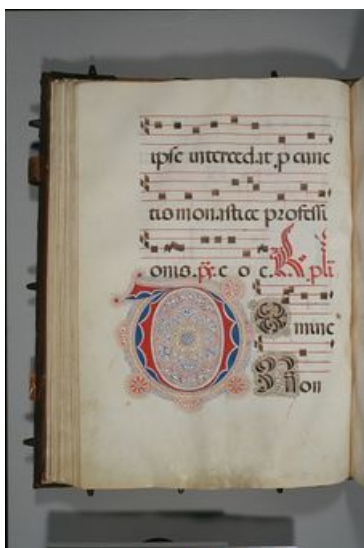 ipse interced.at. p cunc
tis monastice professi
onis. p̄x. e o e. R. pli
D O mine
Non